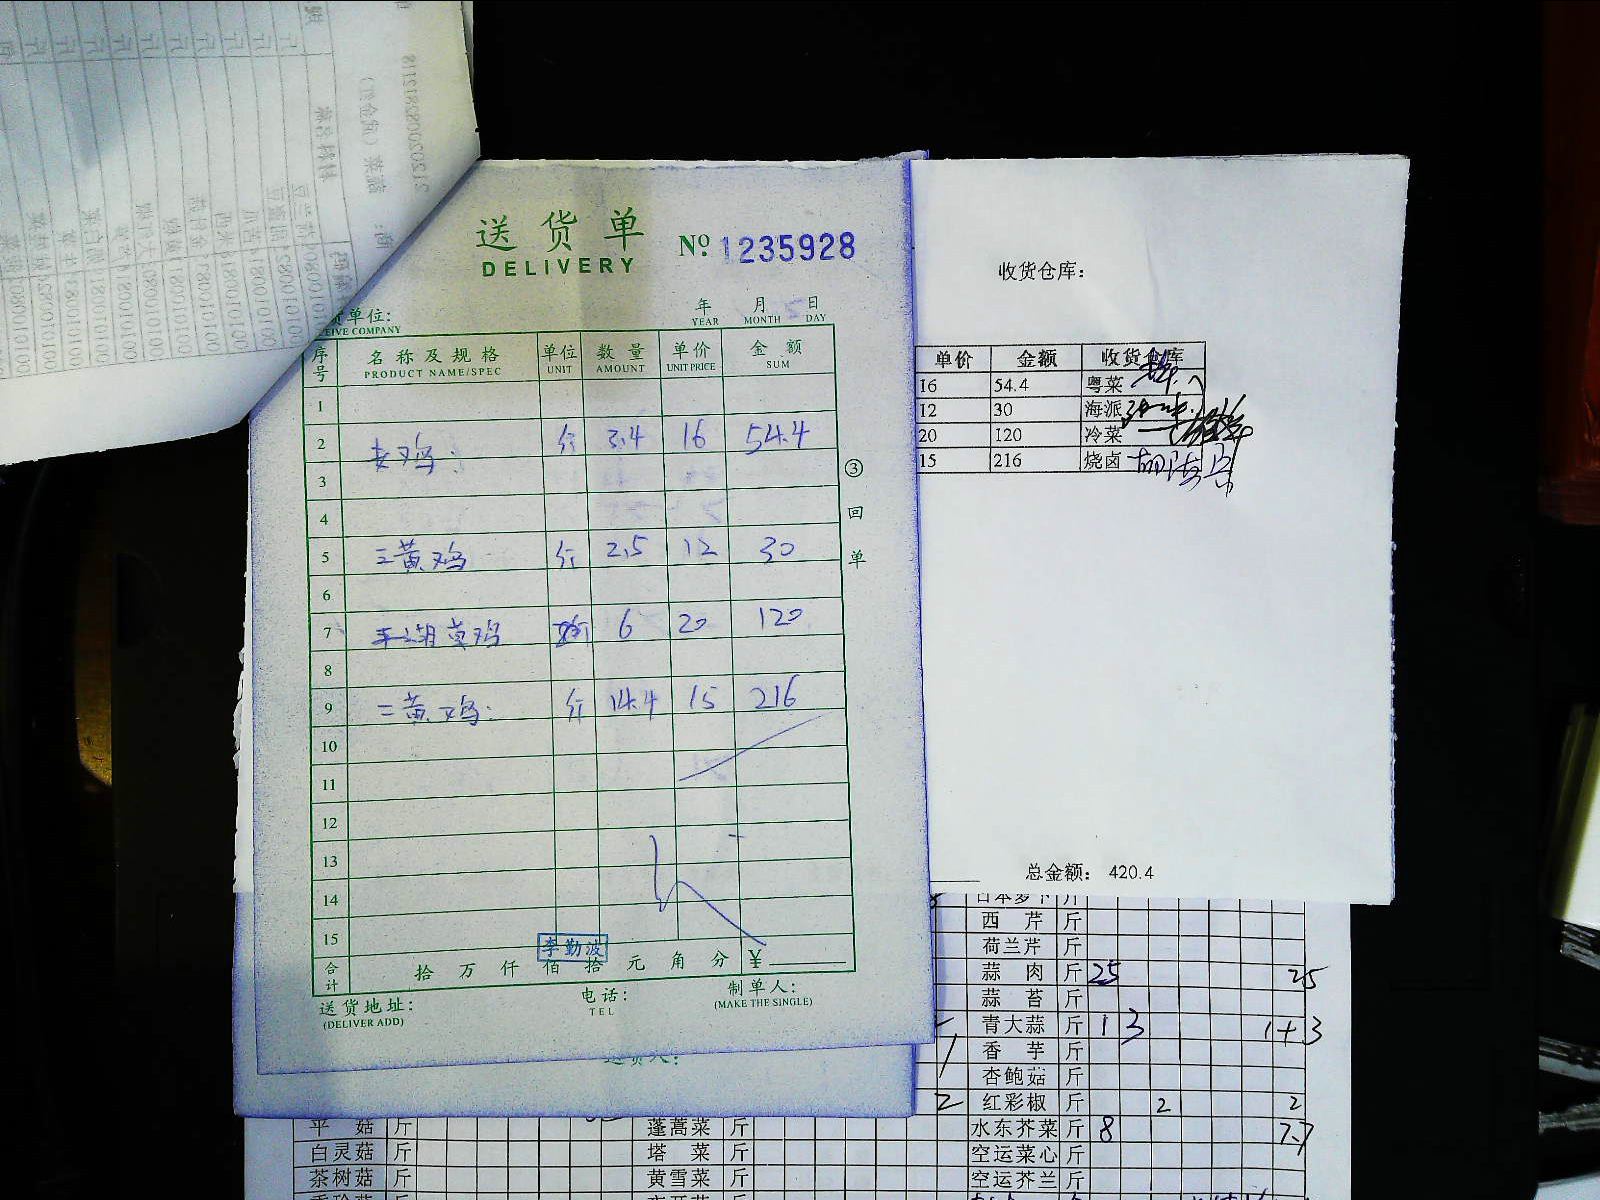 送货单
DELIVERY
Nº 1235928
收货仓库：
货单位:
EIVE COMPANY
年 月 日
YEAR MONTH DAY
序号 名称及规格 单位 数量 单价 金额
PRODUCT NAME/SPEC UNIT AMOUNT UNIT PRICE SUM
1
2 老鸡 斤 3.4 16 54.4
3
4
5 三黄鸡 斤 2.5 12 30
6
7 平湖黄鸡 6 20 120
8
9 三黄鸡 斤 14.4 15 216
10
11
12
13
14
15
李勤波
合计 拾 万 仟 佰 拾 元 角 分 ¥
送货地址: 电话: 制单人:
(DELIVER ADD) TEL (MAKE THE SINGLE)
③回单
单价 金额 收货仓库
16 54.4 粤菜
12 30 海派
20 120 冷菜
15 216 烧卤
总金额： 420.4
日本萝卜 斤
西芹 斤
荷兰芹 斤
蒜肉 斤 25 25
蒜苔 斤
青大蒜 斤 1 3 1+3
香芋 斤
杏鲍菇 斤
2 红彩椒 斤 2 2
平菇 斤 蓬蒿菜 斤 水东芥菜 斤 8 7.7
白灵菇 斤 塔菜 斤 空运菜心 斤
茶树菇 斤 黄雪菜 斤 空运芥兰 斤